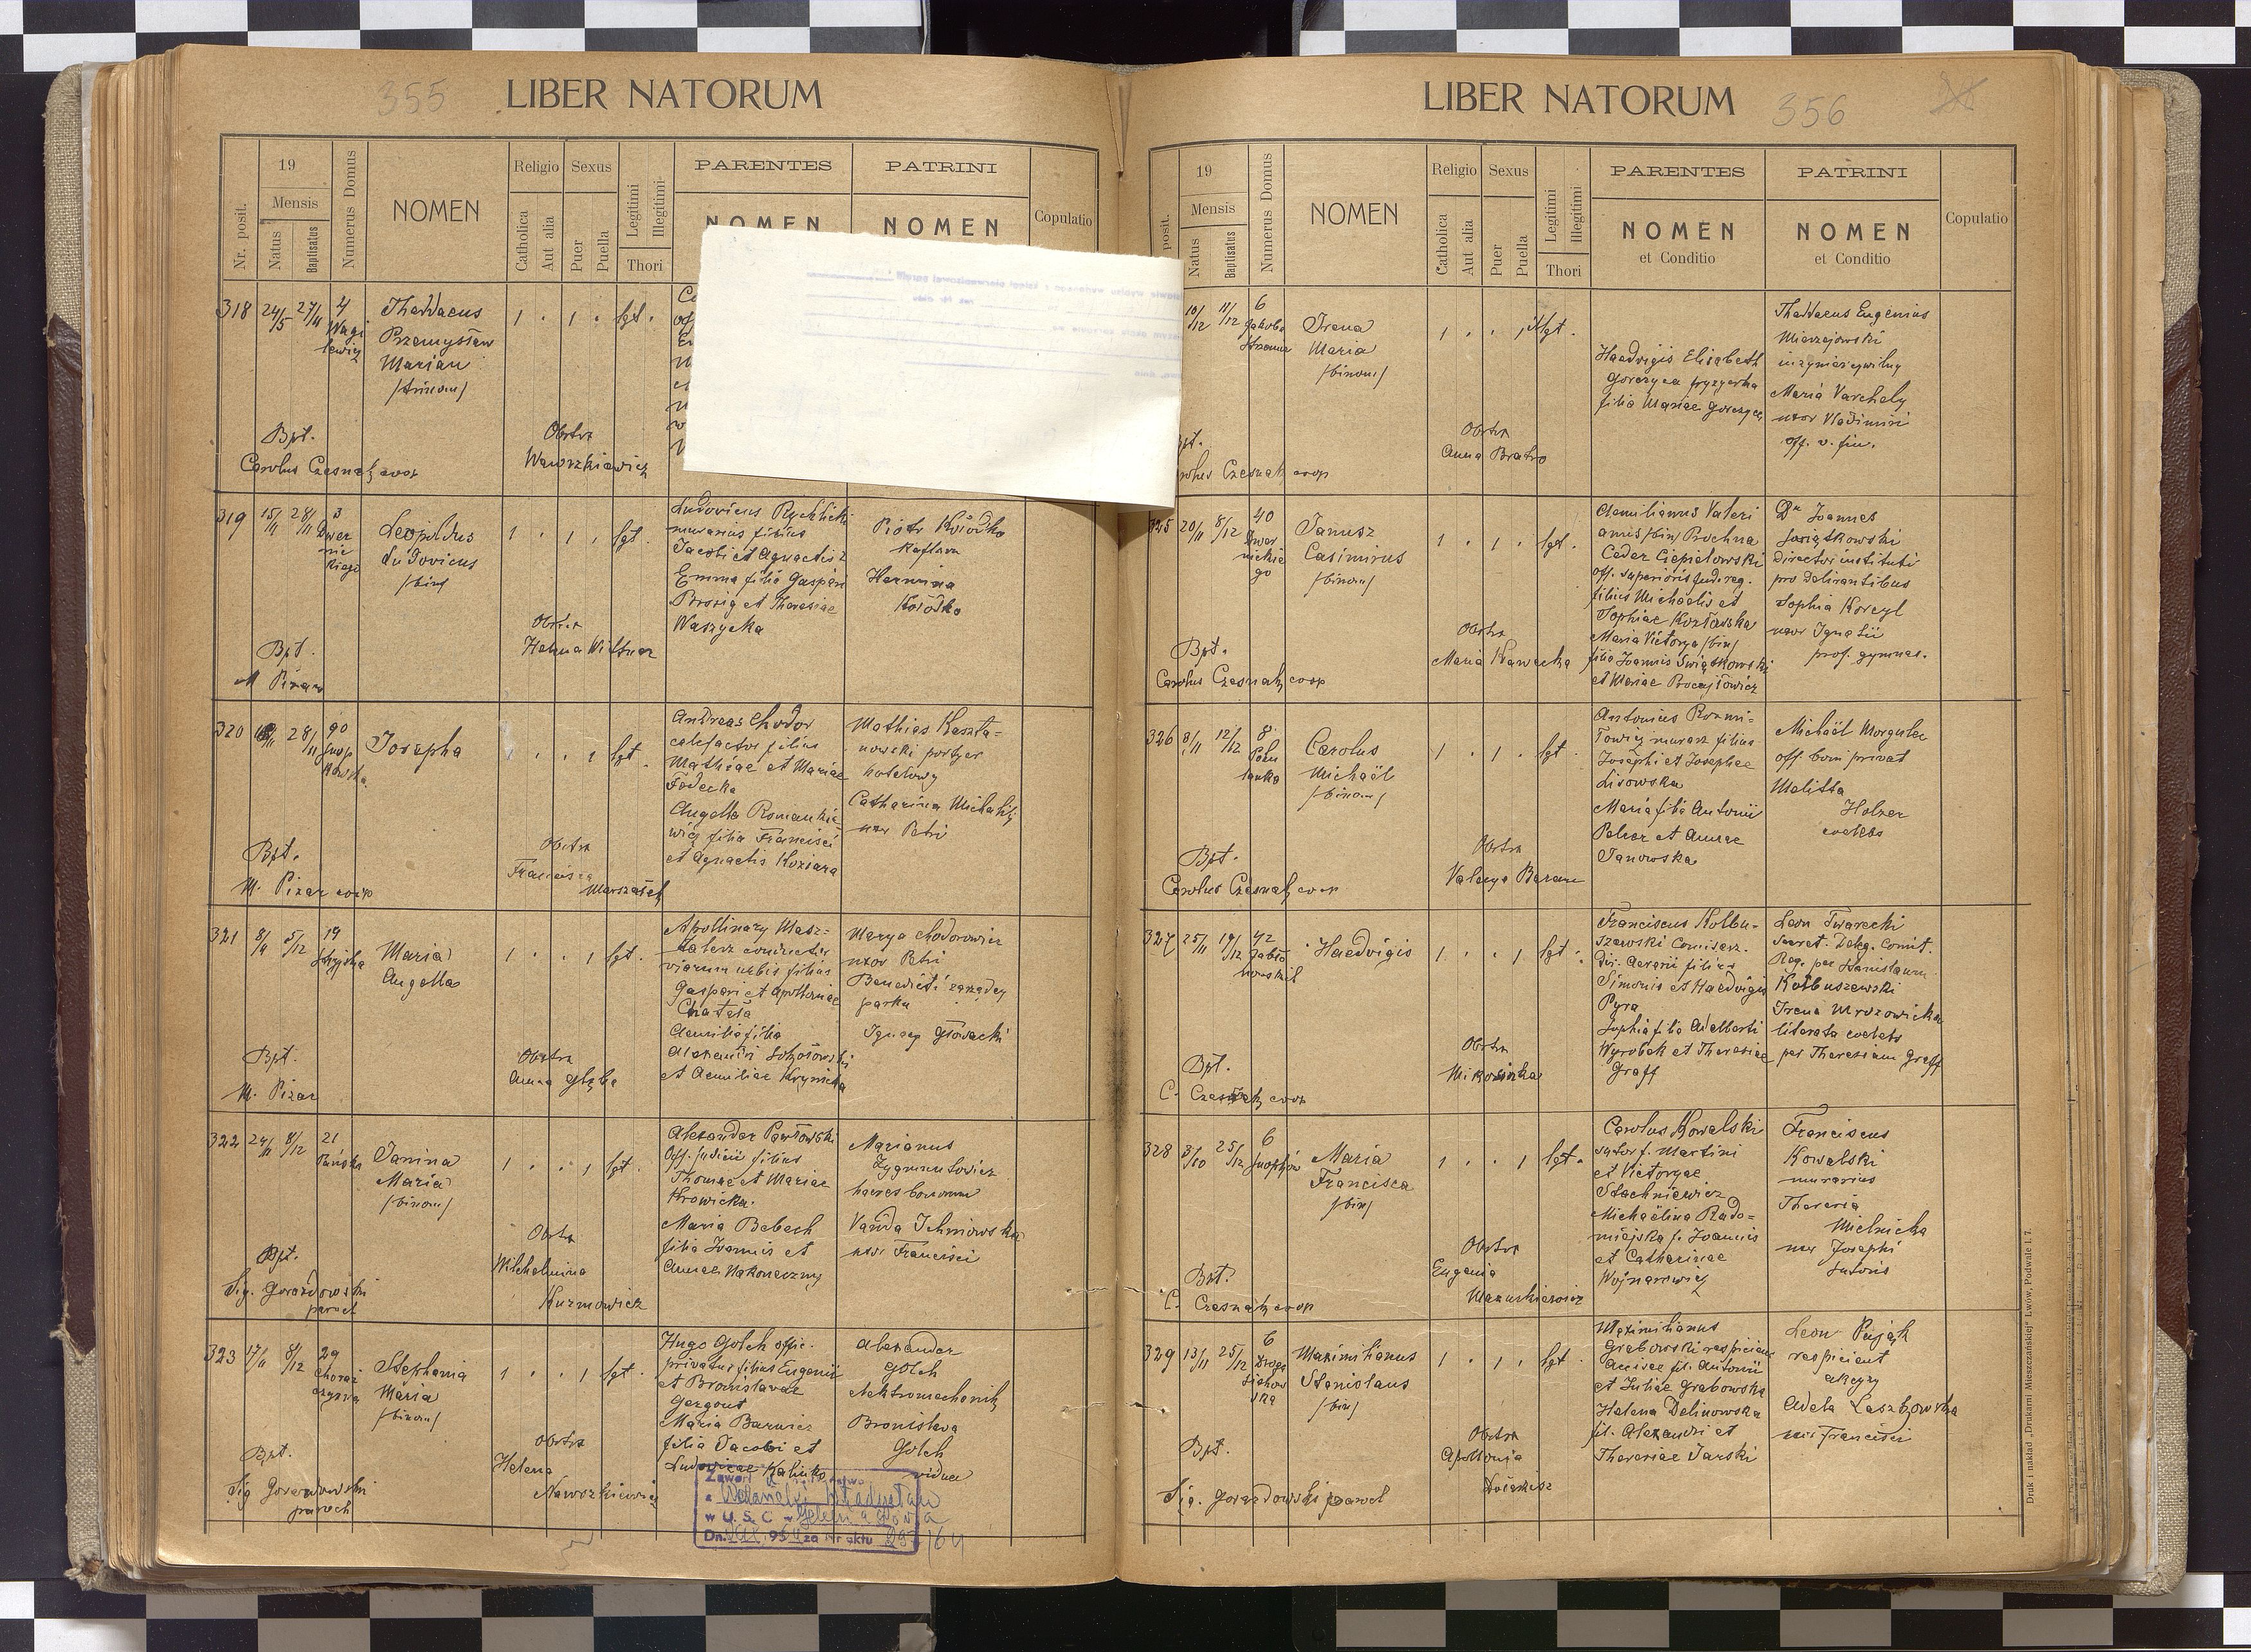 355
LIBER NATORUM
Nr. posit.
19
Mensis
Natus
Baptisatus
Numerus Domus
NOMEN
Religio
Catholica
Aut alia
Sexus
Puer
Puella
Legitimi
Illegitimi
Thori
PARENTES
NOMEN
PATRINI
NOMEN
Copulatio
318 24/5 27/11 4
Thaddaeus
Przemysław
Marian
/trinom/
1 . 1 . lgt.
Bpt.
Carolus Czesnak coop
Obstrx
Wawszkiewicz
319 15/11 28/11 3
Dwer
nic
kiego
Leopoldus
Ludovicus
/bin/
1 . 1 . lgt.
Bpt.
M Pizar
Obstrx
Helena Wiltner
Ludovicus Rychlicki
murarius filius
Jacobi et Agnaetis
Emma filia Gaspari
Brosig et Theresiae
Waszycka
Piotr Kołodko
kaflarz
Hermina
Kołodko
320 28/11 90
Josepha
1 . . 1 lgt.
Bpt.
M. Pizar coop
Obstrx
Francisca
Marszałek
Andreas Chodor
calefactor filius
Mathiae et Mariae
Fedecka
Angella Romankie
wicz filia Francisci
et Agnaetis Koziara
Mathias Kaszta=
nowski portyer
hotelowy
Catharina Michalski
uxor Petri
321 8/11 5/12 19
Stryjska
Maria
Angella
1 . . 1 lgt.
Bpt.
M. Pizar
Obstrx
Anna Głąba
Apollinary Masz=
talerz conductor
viarum urbis filius
Gaspari et Apolloniae
Chatała
Aemilia filia
Alexandri Sokołowski
et Aemiliae Krynicka
Marya Chodorowicz
uxor Petri
Benedicti zarządcy
parku
Ignacy Głowacki
322 24/11 8/12 21
Pańska
Janina
Maria
/binom/
1 . . 1 lgt.
Bpt.
Sig. Gorazdowski
paroch
Obstrx
Wilhelmina
Kuzmowicz
Alexander Pawłowski
Off. judicii filius
Thomae et Mariae
Hrawicka.
Maria Babech
filia Joannis et
Annae Nakoneczny
Marianus
Zygmuntowicz
haeres bonorum
Vanda Ichniowska
uxor Francisci
323 17/11 8/12 29
Chorąż
czyzna
Stephania
Maria
/binom/
1 . . 1 lgt.
Bpt.
Sig Gorazdowski
paroch
Obstrx
Helena
Nawszkiewicz
Hugo Golch offic.
privatus filius Eugenii
et Bronislavae
Gergout
Maria Barwicz
filia Jacobi et
Ludovicae Kalinko
Alexander
Golch
elektromechanik
Bronislava
Golch
vidua
w U. S. C
za Nr aktu
356
LIBER NATORUM
posit.
19
Mensis
Natus
Baptisatus
Numerus Domus
NOMEN
Religio
Catholica
Aut alia
Sexus
Puer
Puella
Legitimi
Illegitimi
Thori
PARENTES
NOMEN
et Conditio
PATRINI
NOMEN
et Conditio
Copulatio
10/12 11/12 6
Jakoba
Irena
Maria
/binom/
Carolus Czesnak coop
Obstrx
Anna Bratro
Haedvigis Elisabeth
Gorczyca fryzyerka
filia Mariae Gorczyca
Thaddaeus Eugenius
Mierzejowski
inzynier cywilny
Maria Varchely
uxor Vladimiri
off. v. fin.
325 20/11 8/12 40
Dwer
nickie
go
Janusz
Casimirus
/binom/
1 . 1 . lgt.
Bpt.
Carolus Czesnak coop
Obstrx
Maria Nawacka
Aemilianus Valeri
anus /bin/ Bochna
Ceder Ciepielowski
off. superioris Jud. reg.
filius Michaelis et
Sophiae Kozłowska
Maria Victorya /bin/
filia Joannis Świątkowski
et Mariae Boczyłowicz
Dr Joannes
Świątkowski
Director instituti
pro delirantibus
Sophia Korcyl
uxor Ignatii
prof. gymnas.
326 8/11 12/12 8
Carolus
Michaël
/binom/
1 . 1 . lgt.
Bpt.
Carolus Czesnak coop
Obstrx
Valerya Baran
Antonius Rozmi=
towicz murarz filius
Josephi et Josephae
Lisowska
Maria filia Antonii
Pelcer et Annae
Janowska
Michaël Morguler
off. privat
Melitta
Holzer
coelebs
327 25/11 19/12 42
Jabło
nowskich
Haedvigis
1 . . 1 lgt.
Bpt.
C. Czesnak coop
Obstrx
Mikosińska
Franciscus Kolbu-
szewski Comissar.
Dir. Aerarii filius
Simonis et Haedvigis
Pyra
Sophia filia Adalberti
Wyrobek et Theresiae
Graff
Leon Twarecki
secret. Deleg. Comit.
Reg. per Stanislaum
Kolbuszewski
Irena Mrozowicka
literata coelebs
per Theresiam Graff
328 3/10 25/12 6
Snopków
Maria
Francisca
/bin/
1 . . 1 lgt.
Bpt.
C. Czesnak coop
Obstrx
Eugenia
Mazurkiewicz
Carolus Kowalski
sutor f. Martini
et Victoryae
Stachniewicz
Michaëlina Rado=
miejska f. Joannis
et Catharinae
Wojnarowicz
Franciscus
Kowalski
murarius
Theresia
Mielnicka
uxor Josephi
sutoris
329 13/11 25/12 6
Maximilianus
Stanislaus
/bin/
1 . 1 . lgt.
Bpt.
Sig. Gorazdowski paroch
Obstrx
Apollonia
Maximilianus
Grabowski respicient
Accisae fil. Antonii
et Juliae Grabowska
Helena Delinowska
fil. Alexandri et
Theresiae Jarski
Leon Pająk
respicient
akcyzy
Adela Laszkowska
uxor Francisci
Druk i nakład „Drukarni Mieszczańskiej" Lwów, Podwale l. 7.